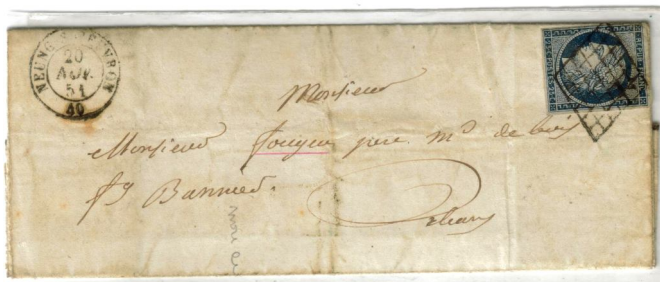 NEUNG-S-BEUVRON
20
AOUT
51
(40)
REPUB. FRANC.
Monsieur
Monsieur Fougeu père md de bois
fg Bannier.
Orléans